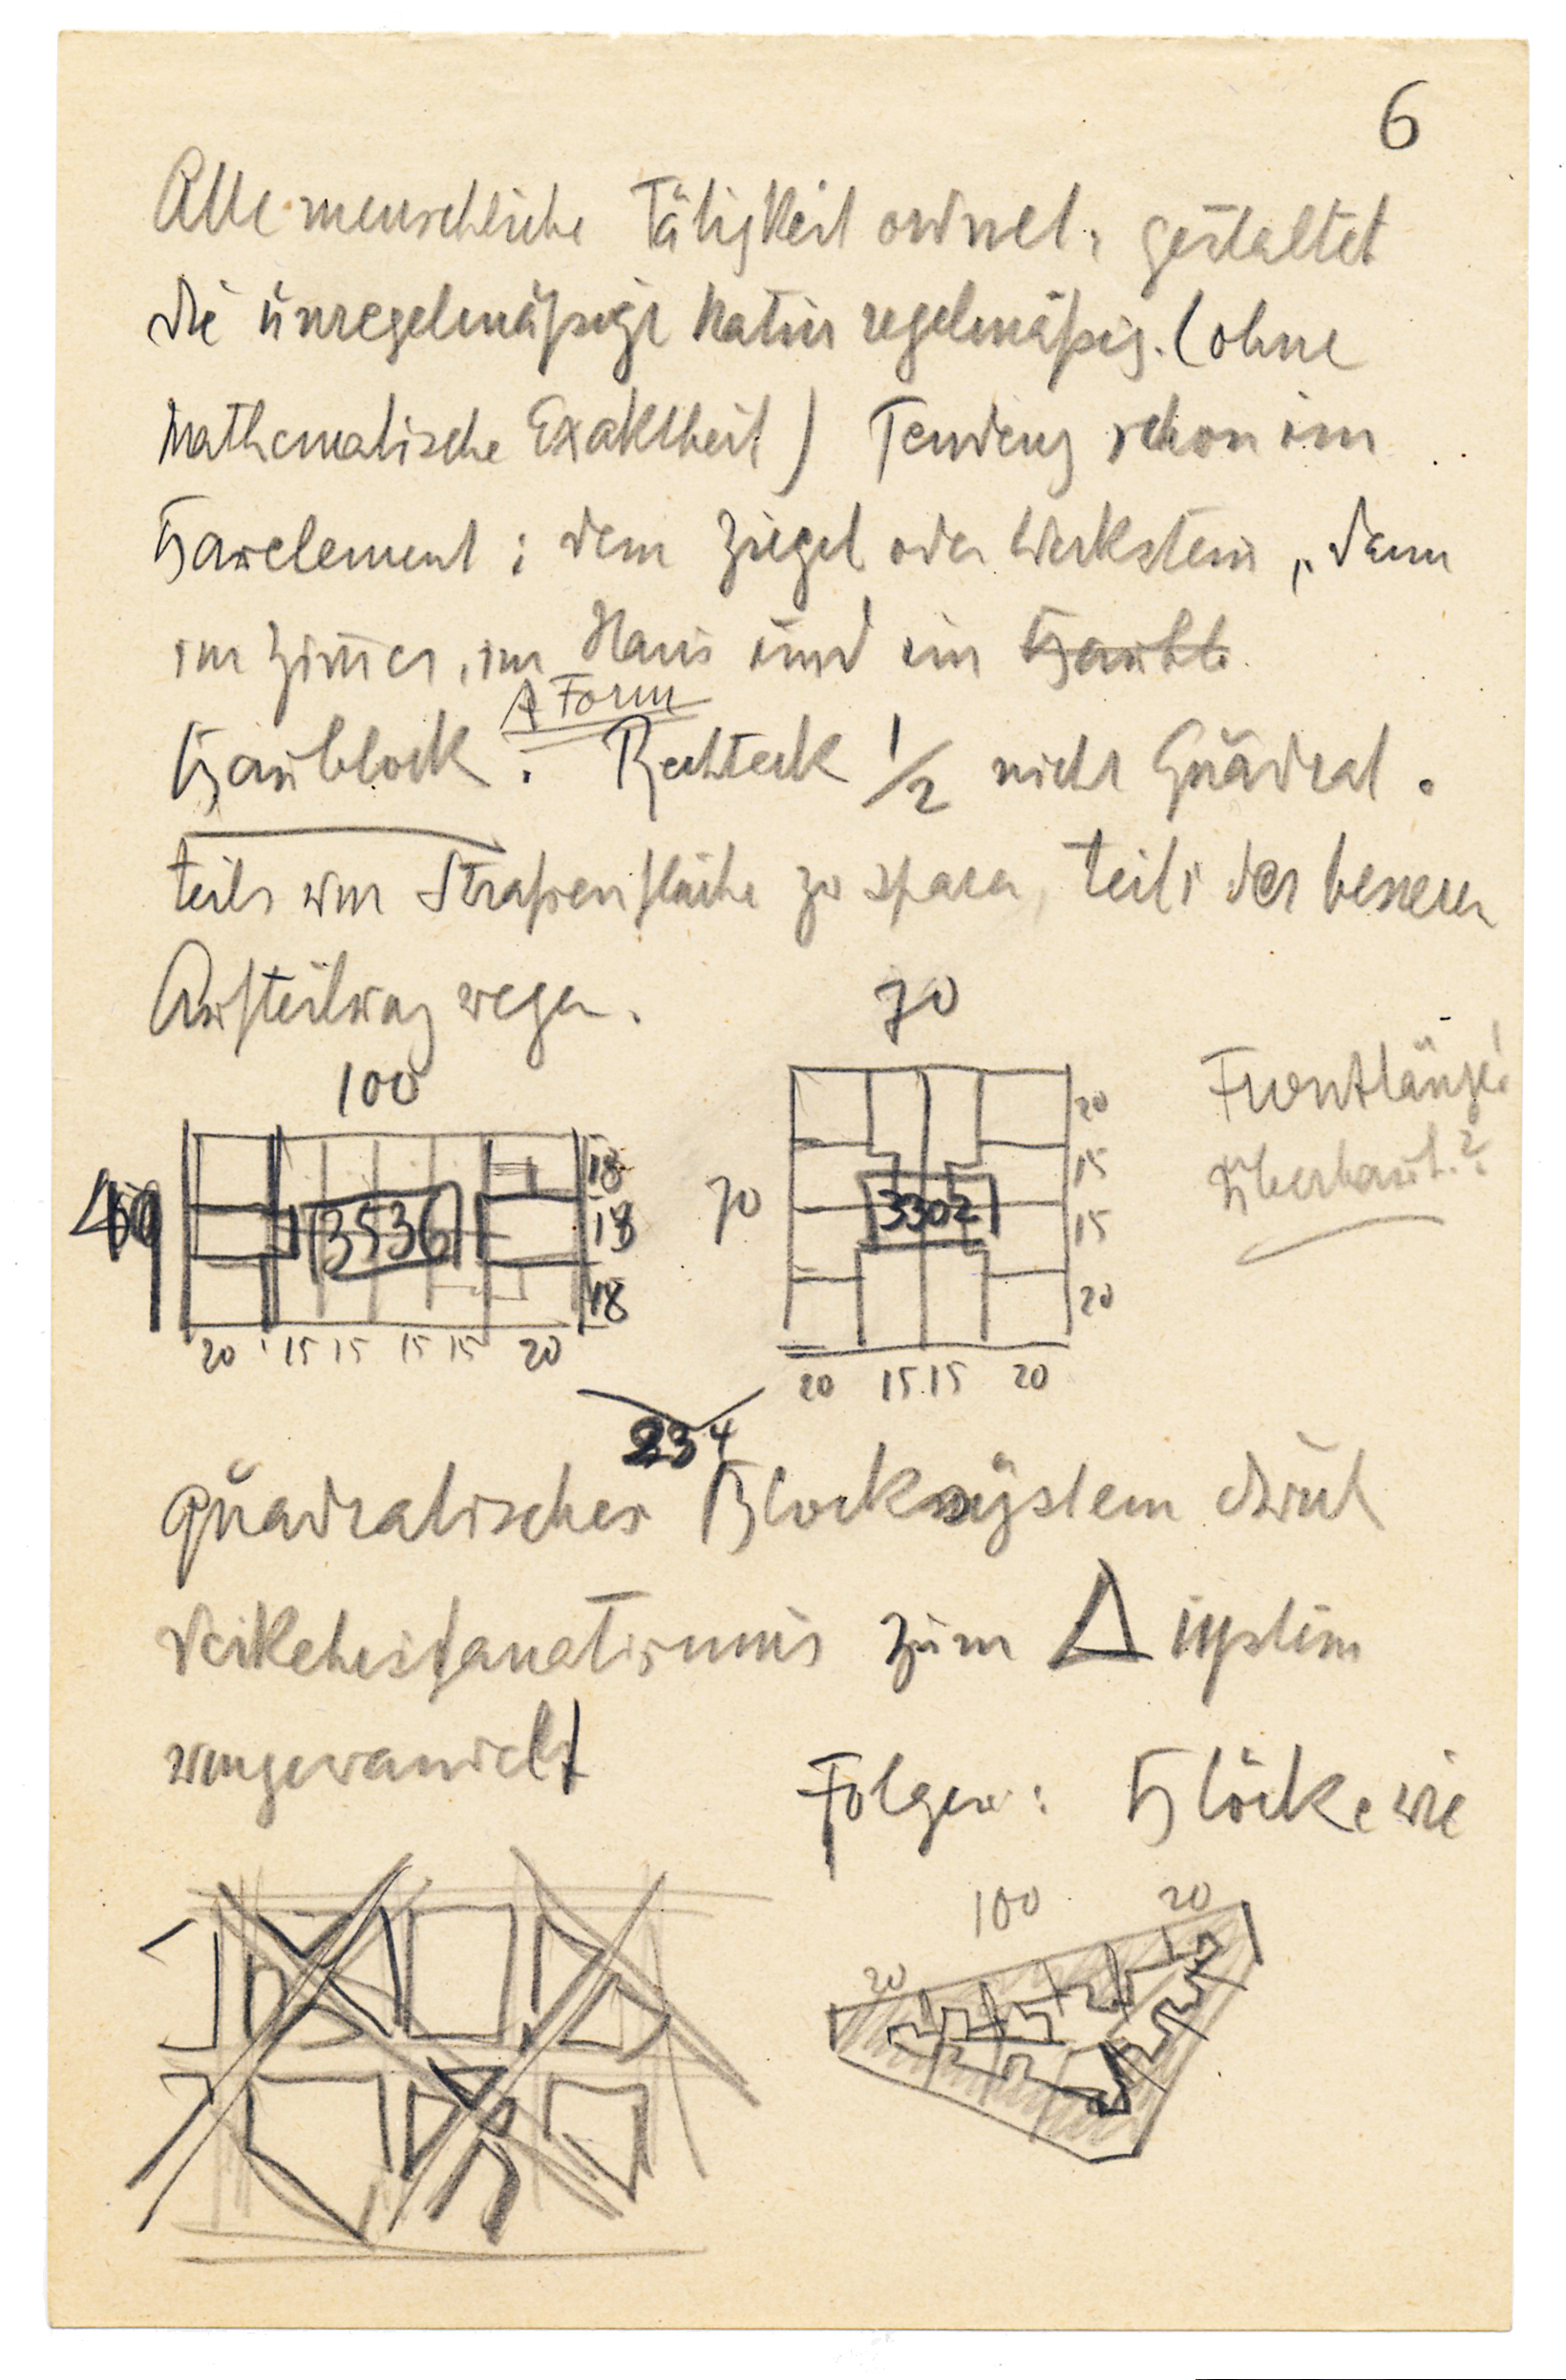 6
Alle menschliche Tätigkeit ordnet, gestaltet
die unregelmäßige Natur regelmäßig. (ohne
Mathematische Exaktheit) Tendenz schon im
Bauelement: dem Ziegel oder Werkstein, dann
im Zimer, im Haus und im
Baublock. Form Rechteck 1/2 nicht Quadrat.
teils um Straßenfläche zu sparen, teils der besseren
Aufteilung wegen.
100
18
18
18
3536
20 15 15 15 15 20
70
70
20
15
15
20
3302
20 15 15 20
Frontlänge!
überbaut?
234
Quadratisches Blocksystem durch
Verkehrsfanatismus zum Δ system
umgewandelt
Folgen: Blöcke wie
100 20
20